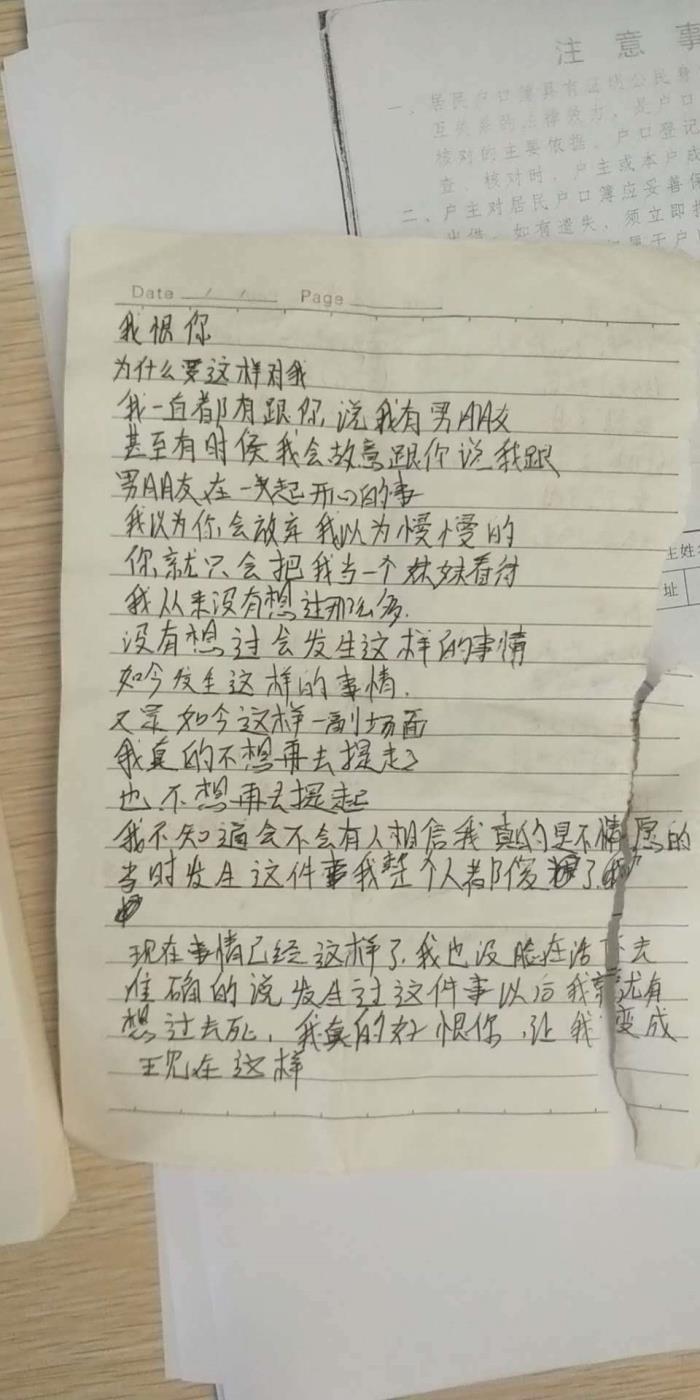 注意事
一、居民户口簿具有证明公民身
互关系的法律效力，是户口
核对的主要依据。户口登记
查、核对时，户主或本户成
二、户主对居民户口簿应妥善保
出借。如有遗失，须立即报
属于户
Date / / Page
我恨你
为什么要这样对我
我一直都有跟你说我有男朋友
甚至有时候我会故意跟你说我跟
男朋友在一起开心的事
我以为你会放弃我以为慢慢的
你就只会把我当一个妹妹看待
我从来没有想过那么多.
没有想过会发生这样的事情
如今发生这样的事情.
又是如今这样一副场面
我真的不想再去提起
也不想再去提起
我不知道会不会有人相信我真的是不情愿的
当时发生这件事我整个人都傻了
现在事情已经这样了.我也没脸在活下去
准确的说发生过这件事以后我就有
想过去死，我真的好恨你，让我变成
现在这样
主姓名
址